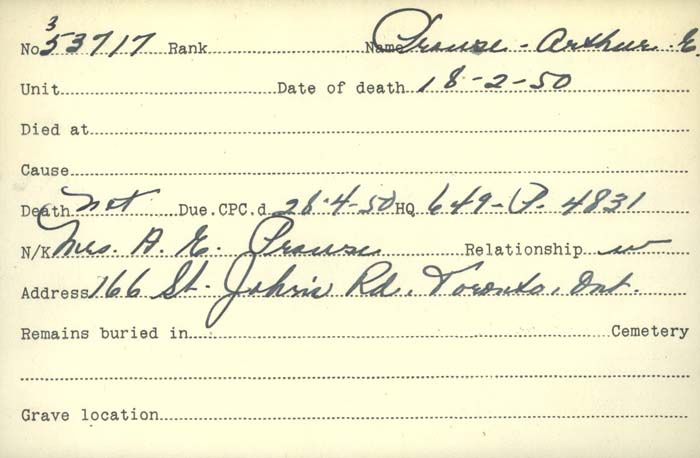 3
No 53717 Rank Name Prouse - Arthur. E.
Unit Date of death 18-2-50
Died at
Cause
Death not Due. CPC. d. 26-4-50 HQ 649-P. 4831
N/K Mrs. A. E. Prouse Relationship w
Address 166 St. John's Rd. Toronto, Ont.
Remains buried in Cemetery
Grave location